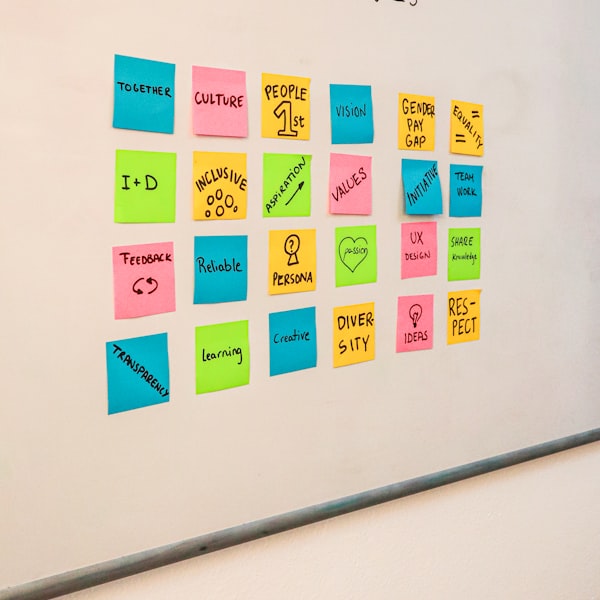 TOGETHER
CULTURE
PEOPLE
1st
VISION
GENDER
PAY
GAP
EQUALITY
I+D
INCLUSIVE
ASPIRATION
VALUES
INITIATIVE
TEAM
WORK
FEEDBACK
Reliable
?
PERSONA
passion
UX
DESIGN
SHARE
Knowledge
TRANSPARENCY
learning
Creative
DIVER-
SITY
IDEAS
RES-
PECT